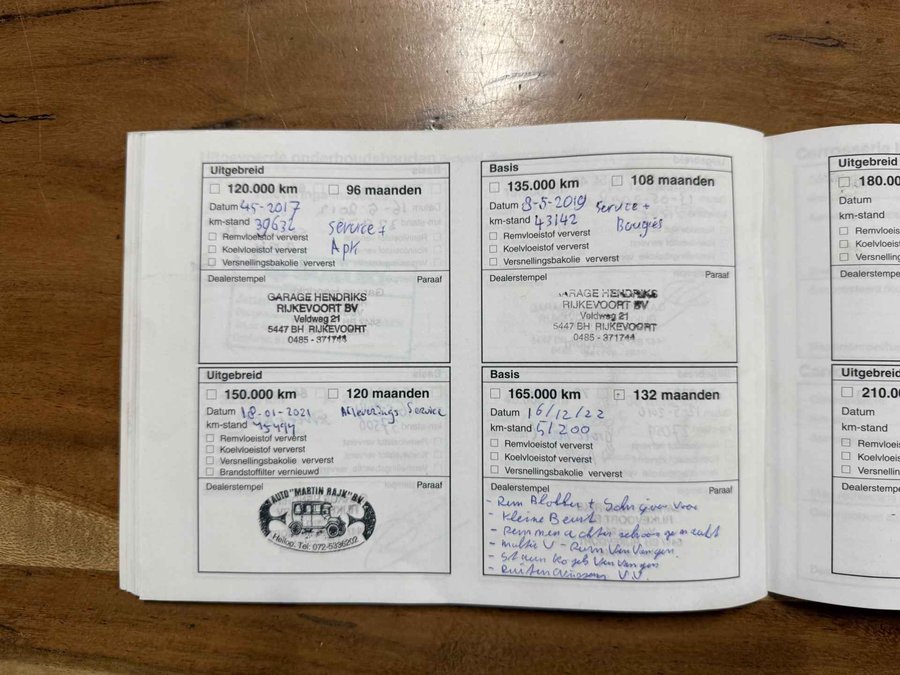 Uitgebreid
120.000 km 96 maanden
Datum 4-5-2017
km-stand 39632 service +
Remvloeistof ververst
Apk
Koelvloeistof ververst
Versnellingsbakolie ververst
Dealerstempel Paraaf
GARAGE HENDRIKS
RIJKEVOORT BV
Veldweg 21
5447 BH RIJKEVOORT
0485 - 371744
Basis
135.000 km 108 maanden
Datum 8-5-2019 service +
km-stand 43142 Bougies
Remvloeistof ververst
Koelvloeistof ververst
Versnellingsbakolie ververst
Dealerstempel Paraaf
GARAGE HENDRIKS
RIJKEVOORT BV
Veldweg 21
5447 BH RIJKEVOORT
0485 - 371744
Uitgebreid
150.000 km 120 maanden
Datum 18-01-2021 Afleverings Service
km-stand
Remvloeistof ververst
Koelvloeistof ververst
Versnellingsbakolie ververst
Brandstoffilter vernieuwd
Dealerstempel Paraaf
AUTO "MARTIN RAJK" BV
Heiloo, Tel: 072-5336202
Basis
165.000 km 132 maanden
Datum 16/12/22
km-stand 51200
Remvloeistof ververst
Koelvloeistof ververst
Versnellingsbakolie ververst
Dealerstempel Paraaf
- Rem Blokken + Schijven voor
- Kleine Beurt
- Remmen achter schoon gemaakt
- multie V - Riem Vervangen
- Vervangen
- Ruiten V.V.
Uitgebreid
180.00
Datum
km-stand
Remvloeis
Koelvloeis
Versnellin
Dealerstempel
Uitgebreid
210.0
Datum
km-stand
Remvloei
Koelvloei
Versnellin
Dealerstempe